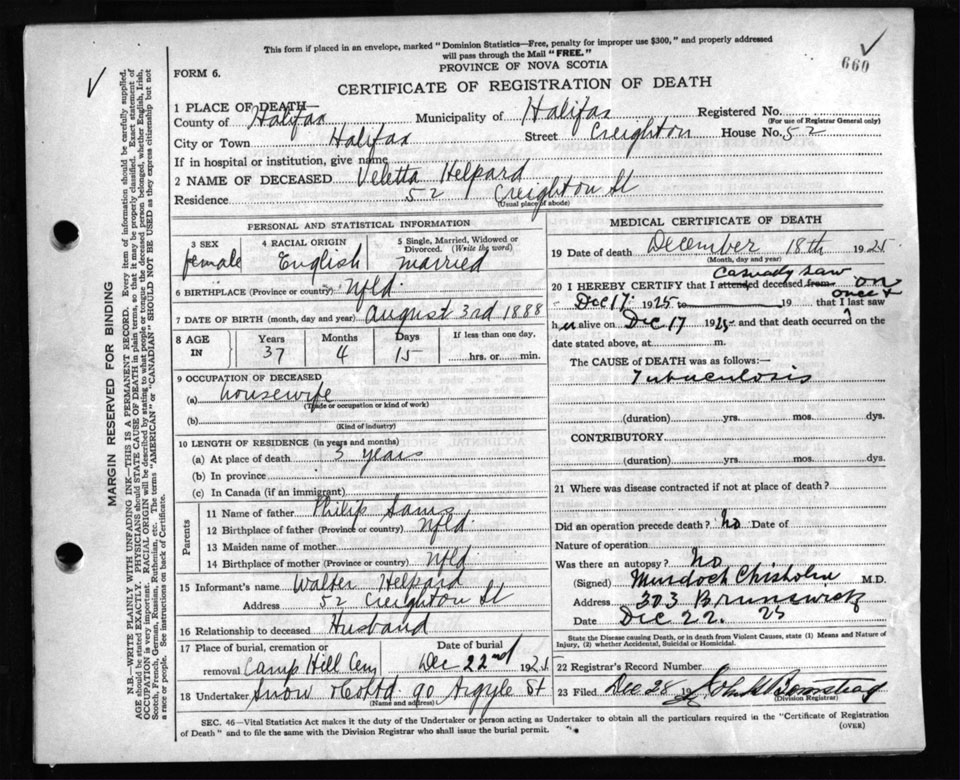 This form if placed in an envelope, marked "Dominion Statistics—Free, penalty for improper use $300," and properly addressed
will pass through the Mail "FREE."
660
FORM 6.
PROVINCE OF NOVA SCOTIA
CERTIFICATE OF REGISTRATION OF DEATH
1 PLACE OF DEATH—
County of Halifax Municipality of Halifax Registered No.
(For use of Registrar General only)
City or Town Halifax Street Creighton House No. 52
If in hospital or institution, give name
2 NAME OF DECEASED Veletta Helpard
Residence 52 Creighton St
(Usual place of abode)
PERSONAL AND STATISTICAL INFORMATION
3 SEX
female
4 RACIAL ORIGIN
English
5 Single, Married, Widowed or
Divorced. (Write the word)
married
6 BIRTHPLACE (Province or country) Nfld.
7 DATE OF BIRTH (month, day and year) August 3rd 1888
8 AGE
IN
Years Months Days If less than one day,
37 4 15 hrs. or min.
9 OCCUPATION OF DECEASED
(a) housewife
(Trade or occupation or kind of work)
(b)
(Kind of industry)
10 LENGTH OF RESIDENCE (in years and months)
(a) At place of death 3 years
(b) In province
(c) In Canada (if an immigrant)
Parents
11 Name of father Philip
12 Birthplace of father (Province or country) Nfld.
13 Maiden name of mother
14 Birthplace of mother (Province or country) Nfld.
15 Informant's name Walter Helpard
Address 52 Creighton St
16 Relationship to deceased Husband
17 Place of burial, cremation or Date of burial
removal Camp Hill Cem Dec 22nd 1925
18 Undertaker Snow & Co Ltd. 90 Argyle St
(Name and address)
MEDICAL CERTIFICATE OF DEATH
19 Date of death December 18th 1925
(Month, day and year)
casually saw
20 I HEREBY CERTIFY that I attended deceased from on
once &
Dec 17 1925 to 19 that I last saw
her alive on Dec 17 1925 and that death occurred on the
date stated above, at m.
The CAUSE of DEATH was as follows:—
Tuberculosis
(duration) yrs. mos. dys.
CONTRIBUTORY
(duration) yrs. mos. dys.
21 Where was disease contracted if not at place of death?
Did an operation precede death? No Date of
Nature of operation
Was there an autopsy? No
(Signed) Murdoch Chisholm M.D.
Address 303 Brunswick
Date Dec 22. 25
State the Disease causing Death, or in death from Violent Causes, state (1) Means and Nature of
Injury, (2) whether Accidental, Suicidal or Homicidal.
22 Registrar's Record Number
23 Filed Dec 28 19
(Division Registrar)
SEC. 46—Vital Statistics Act makes it the duty of the Undertaker or person acting as Undertaker to obtain all the particulars required in the "Certificate of Registration
of Death" and to file the same with the Division Registrar who shall issue the burial permit.
(OVER)
MARGIN RESERVED FOR BINDING
N.B.—WRITE PLAINLY WITH UNFADING INK—THIS IS A PERMANENT RECORD. Every item of information should be carefully supplied.
AGE should be stated EXACTLY. PHYSICIANS should STATE CAUSE OF DEATH in plain terms, so that it may be properly classified. Exact statement of
OCCUPATION is very important. RACIAL ORIGIN will be described by stating to what people or tongue the deceased person belonged, whether English, Irish,
Scotch, French, German, Russian, Ruthenian, etc. The terms "AMERICAN" or "CANADIAN" SHOULD NOT BE USED as they express citizenship but not
a race or people. See instructions on back of Certificate.